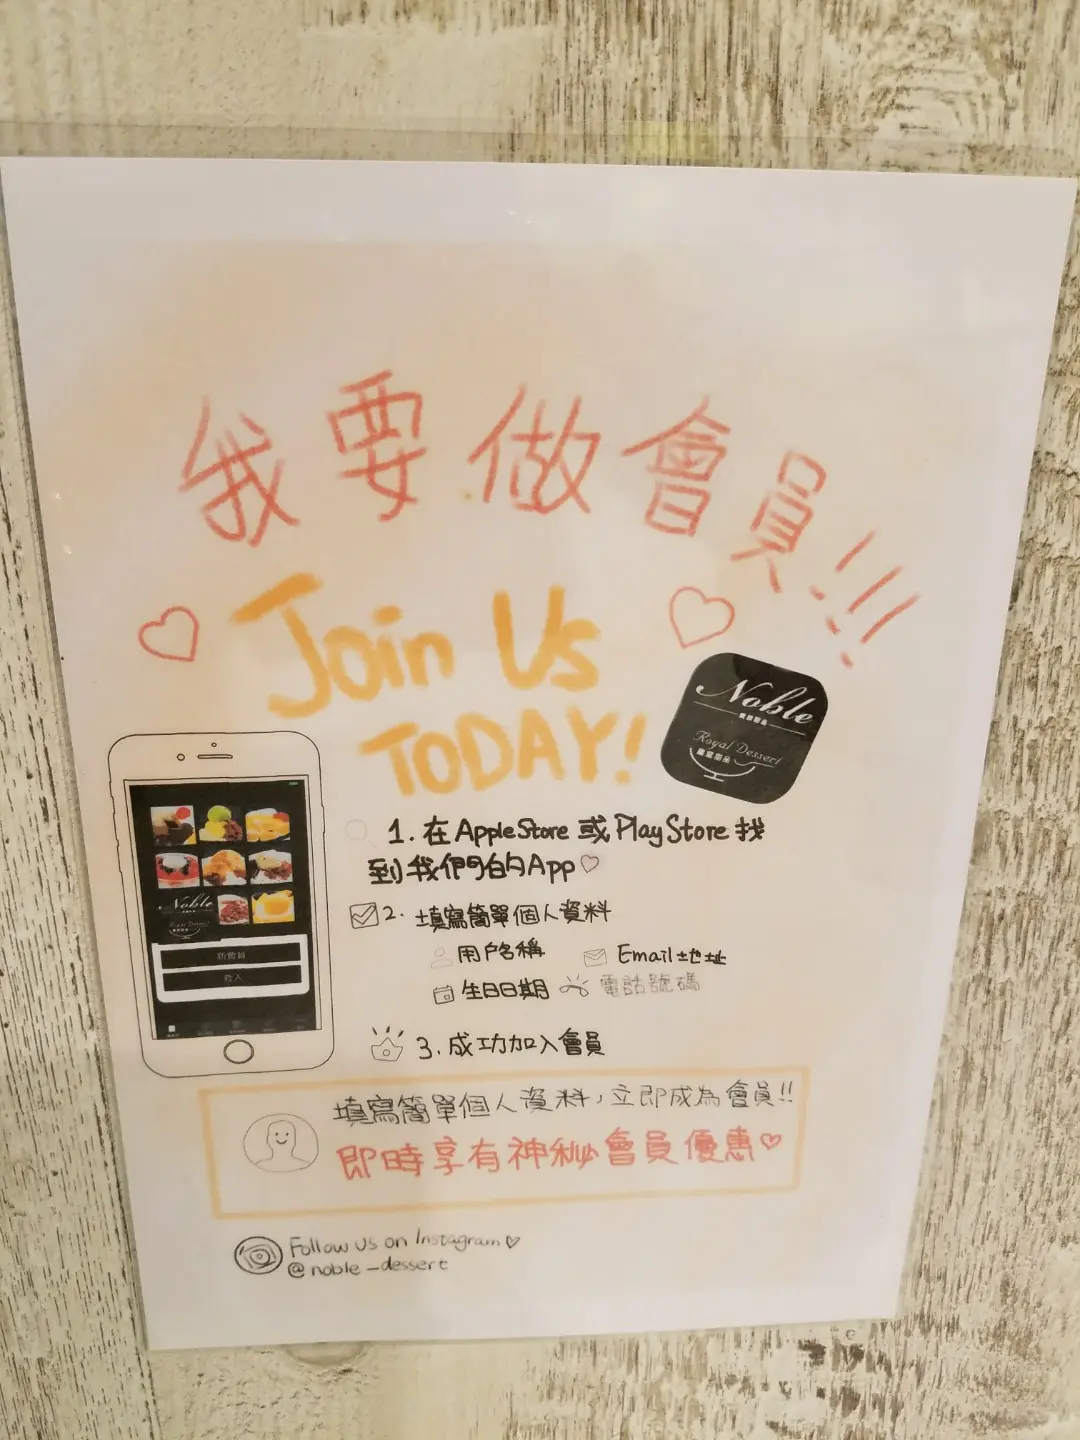 我要做會員!!!
Join Us
TODAY!
Noble
Royal Dessert
皇室甜品
1. 在 Apple Store 或 Play Store 找
到我們的App♡
2. 填寫簡單個人資料
用戶名稱 Email地址
生日日期 電話號碼
3. 成功加入會員
Noble
Royal Dessert
新會員
登入
填寫簡單個人資料，立即成為會員!!
即時享有神秘會員優惠♡
Follow us on Instagram♡
@noble_dessert